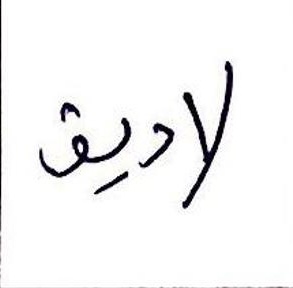 لاديق